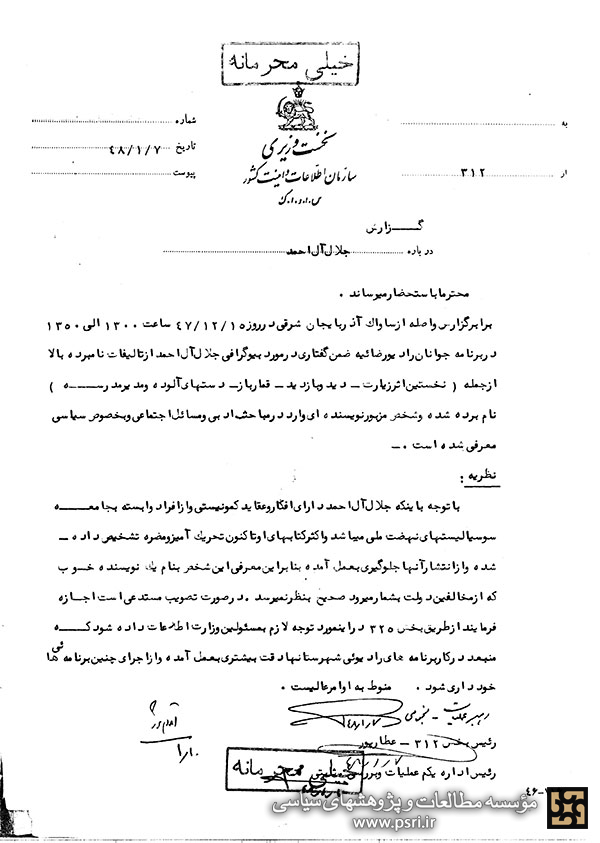 خیلی محرمانه
نخست وزیری
سازمان اطلاعات و امنیت کشور
س.ا.و.ا.ک
به
از ۳۱۲
شماره
تاریخ ۴۸/۱/۷
پیوست
گـــزارش
درباره جلال آل احمد
محترما باستحضار میرساند .
برابر گزارش واصله از ساواك آذربایجان شرقی در روز ۴۷/۱۲/۱۵ ساعت ۱۳۰۰ الی ۱۳۵۰
در برنامه جوانان رادیو رضائیه ضمن گفتاری در مورد بیوگرافی جلال آل احمد از تالیفات نامبرده بالا
از جمله ( نخستین اثر زیارت - دید و بازدید - قمارباز - دستهای آلوده و مدیر مدرســه )
نام برده شده و شخص مزبور نویسنده ای وارد در مباحث ادبی و مسائل اجتماعی و بخصوص سیاسی
معرفی شده است . -
نظریه :
با توجه باینکه جلال آل احمد دارای افکار و عقاید کمونیستی و از افراد وابسته بجامعـــه
سوسیالیستهای نهضت ملی میباشد و اکثر کتابهای او تاکنون تحریك آمیز و مضره تشخیص داده -
شده و از انتشار آنها جلوگیری بعمل آمده بنابراین معرفی این شخص بنام یك نویسنده خــوب
که از مخالفین دولت بشمار میرود صحیح بنظر نمیرسد . در صورت تصویب مستدعی است اجازه
فرمایند از طریق بخش ۳۲۵ در اینمورد توجه لازم بمسئولین وزارت اطلاعات داده شود کــه
منبعد در کار برنامه های رادیوئی شهرستانها دقت بیشتری بعمل آمده و از اجرای چنین برنامه ئی ها
خودداری شود . منوط به اوامر عالیست .
رهبر عملیات -
رئیس بخش ۳۱۲ - عطارپور
رئیس اداره یکم عملیات و بررسی
خیلی محرمانه
مؤسسه مطالعات و پژوهشهای سیاسی
www.psri.ir